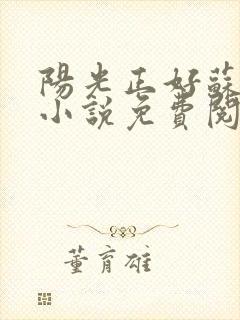 陽光正好蘇
小說免費閱
董育雄